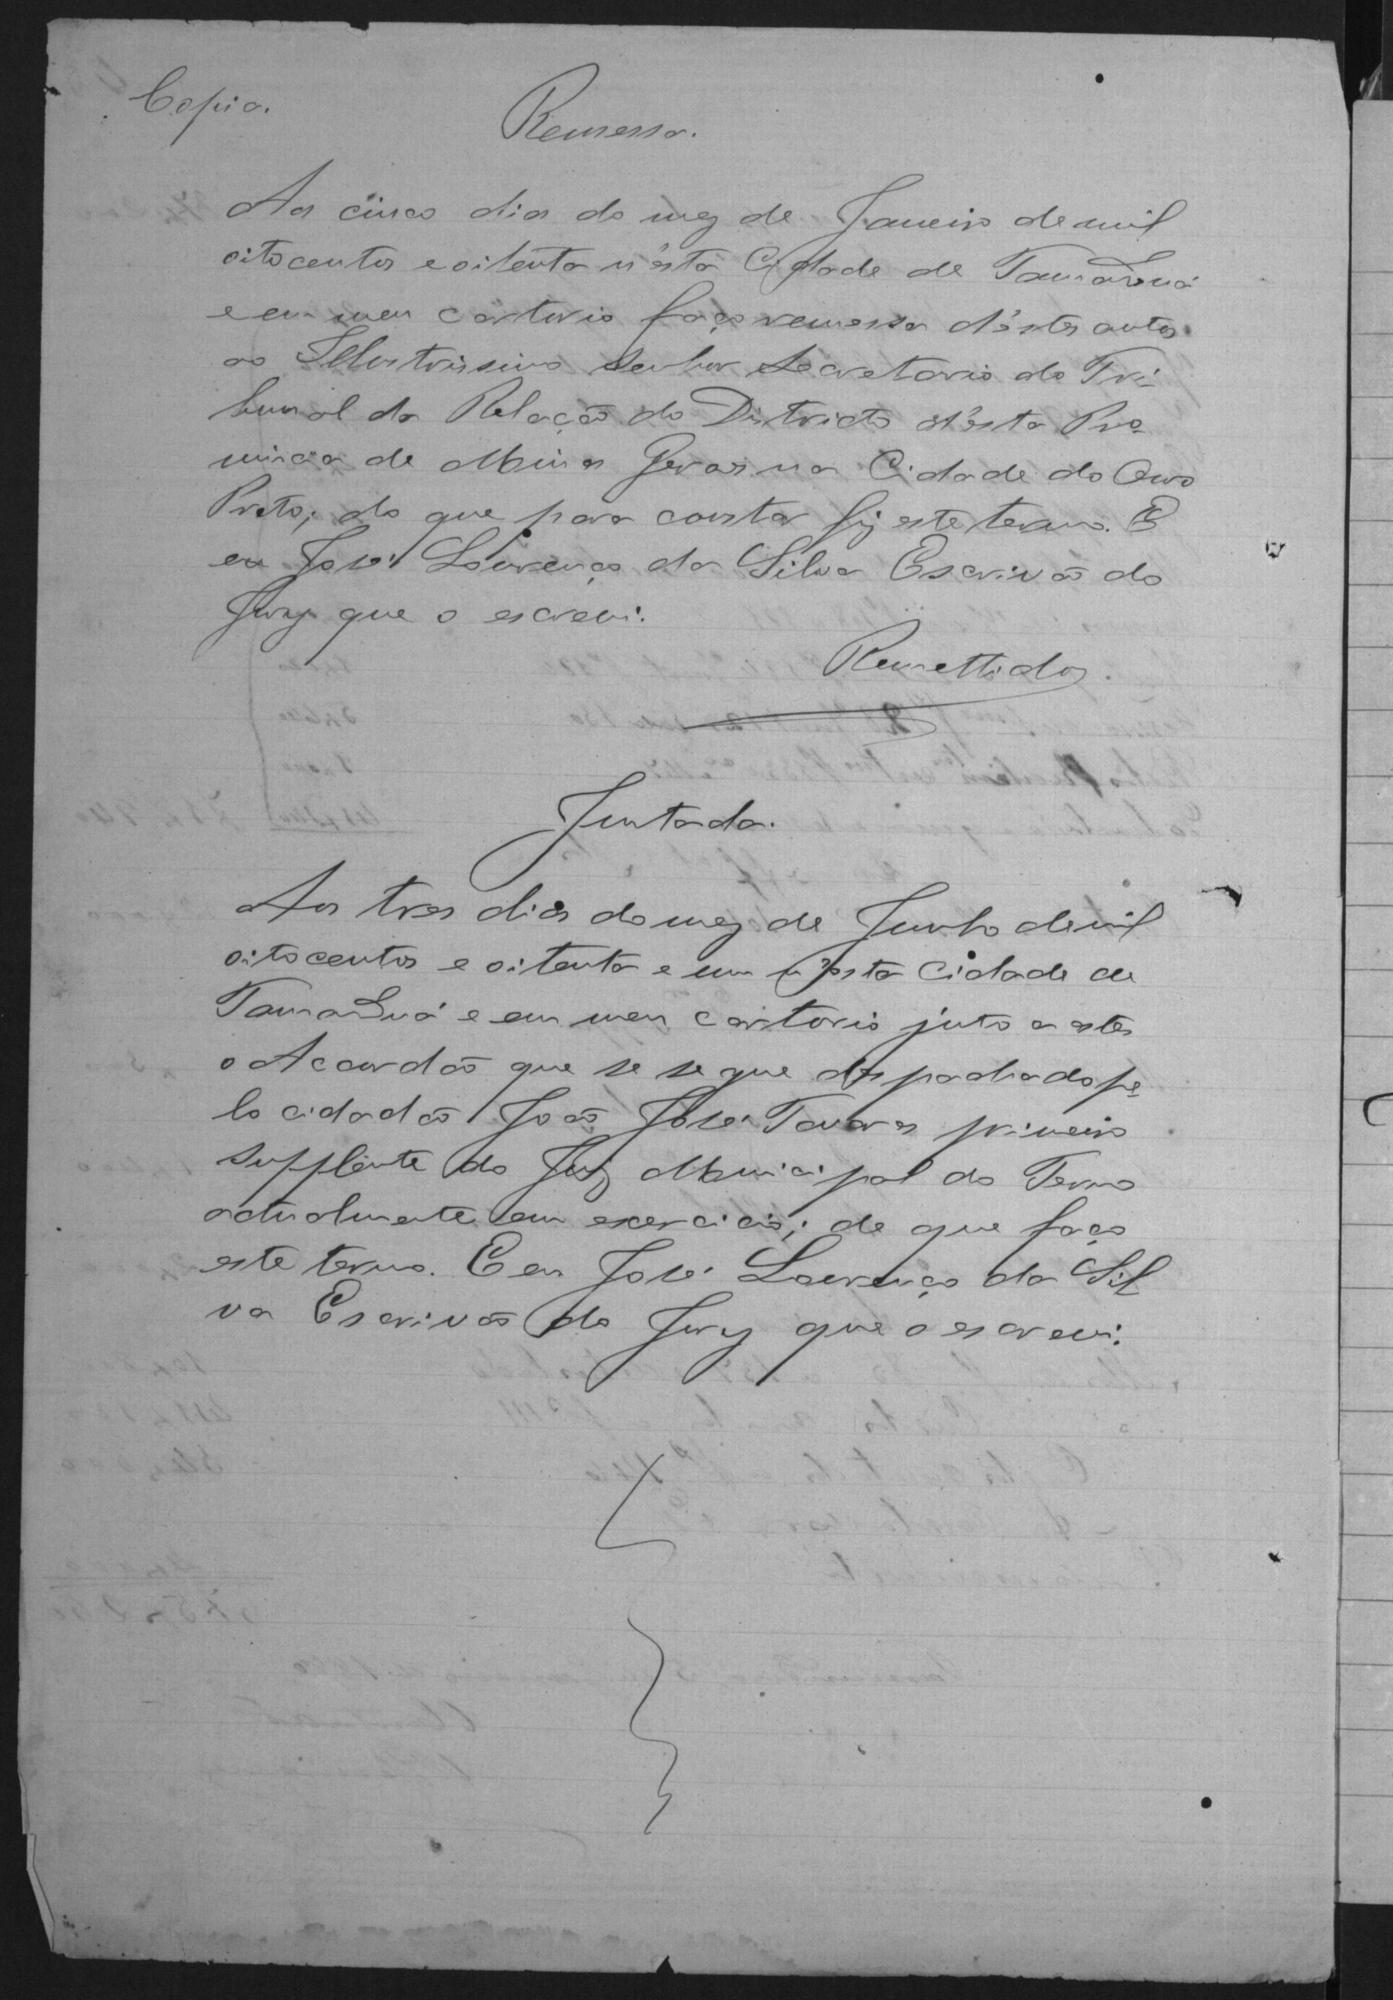 Copia.
Remessa.
Aos cinco dias do mez de Janeiro de mil
oitocentos e oitenta n'esta Cidade de Tamanduá
e em meu cartorio faço remessa d'estes autos
ao Illustrissimo Senhor Secretario do Tri-
bunal da Relação do Districto d'esta Pro-
vincia de Minas Geraes na Cidade do Ouro
Preto; do que para constar fiz este termo. E
eu José Lourenço da Silva Escrivão do
Jury que o escrevi.
Remettidos.
Juntada.
Aos tres dias do mez de Junho de mil
oitocentos e oitenta e um n'esta Cidade de
Tamanduá e em meu cartorio junto a estes
o Accordão que se segue despachado pe-
lo cidadão João José Tavares primeiro
supplente do Juiz Municipal do Termo
actualmente em exercicio; de que faço
este termo. E eu José Lourenço da Sil-
va Escrivão do Jury que o escrevi.